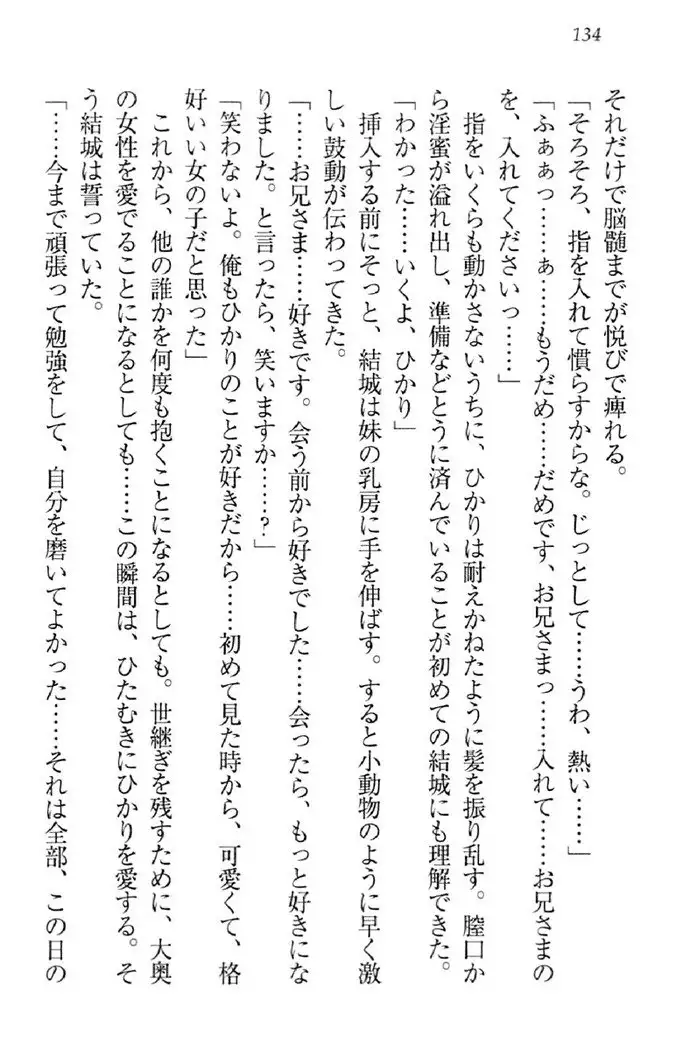 134
それだけで脳髄までが悦びで痺れる。
「そろそろ、指を入れて慣らすからな。じっとして……うわ、熱い……」
「ふぁぁっ……ぁ……もうだめ……だめです、お兄さまっ……入れて……お兄さまの
を、入れてくださいっ……」
　指をいくらも動かさないうちに、ひかりは耐えかねたように髪を振り乱す。膣口か
ら淫蜜が溢れ出し、準備などとうに済んでいることが初めての結城にも理解できた。
「わかった……いくよ、ひかり」
　挿入する前にそっと、結城は妹の乳房に手を伸ばす。すると小動物のように早く激
しい鼓動が伝わってきた。
「……お兄さま……好きです。会う前から好きでした……会ったら、もっと好きにな
りました。と言ったら、笑いますか……?」
「笑わないよ。俺もひかりのことが好きだから……初めて見た時から、可愛くて、格
好いい女の子だと思った」
　これから、他の誰かを何度も抱くことになるとしても。世継ぎを残すために、大奥
の女性を愛でることになるとしても……この瞬間は、ひたむきにひかりを愛する。そ
う結城は誓っていた。
「……今まで頑張って勉強をして、自分を磨いてよかった……それは全部、この日の